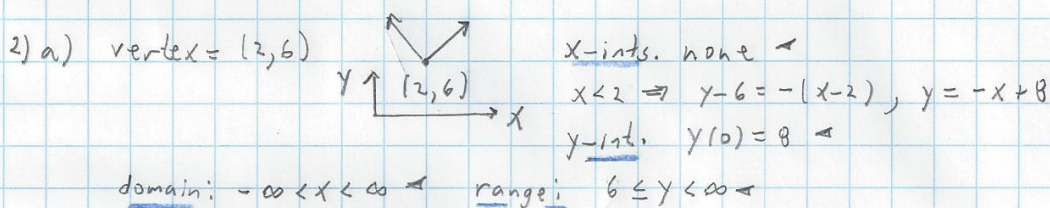 2) a) vertex = (2,6)
(2,6)
y
x
x-ints. none
x<2 ⇒ y-6 = -(x-2), y = -x+8
y-int. y(0) = 8
domain: -∞ < x < ∞ range: 6 ≤ y < ∞